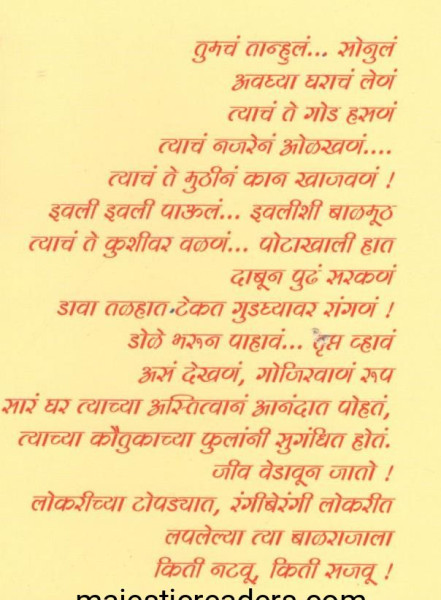 तुमचं तान्हुलं... सोनुलं
अवघ्या घराचं लेणं
त्याचं ते गोड हसणं
त्याचं नजरेनं ओळखणं....
त्याचं ते मुठीनं कान खाजवणं !
इवली इवली पाऊलं... इवलीशी बाळमूठ
त्याचं ते कुशीवर वळणं... पोटाखाली हात
दाबून पुढं सरकणं
डावा तळहात टेकत गुडघ्यावर रांगणं !
डोळे भरून पाहावं... तृप्त व्हावं
असं देखणं, गोजिरवाणं रूप
सारं घर त्याच्या अस्तित्वानं आनंदात पोहतं,
त्याच्या कौतुकाच्या फुलांनी सुगंधित होतं.
जीव वेडावून जातो !
लोकरीच्या टोपड्यात, रंगीबेरंगी लोकरीत
लपलेल्या त्या बाळराजाला
किती नटवू, किती सजवू !
majesticreaders.com